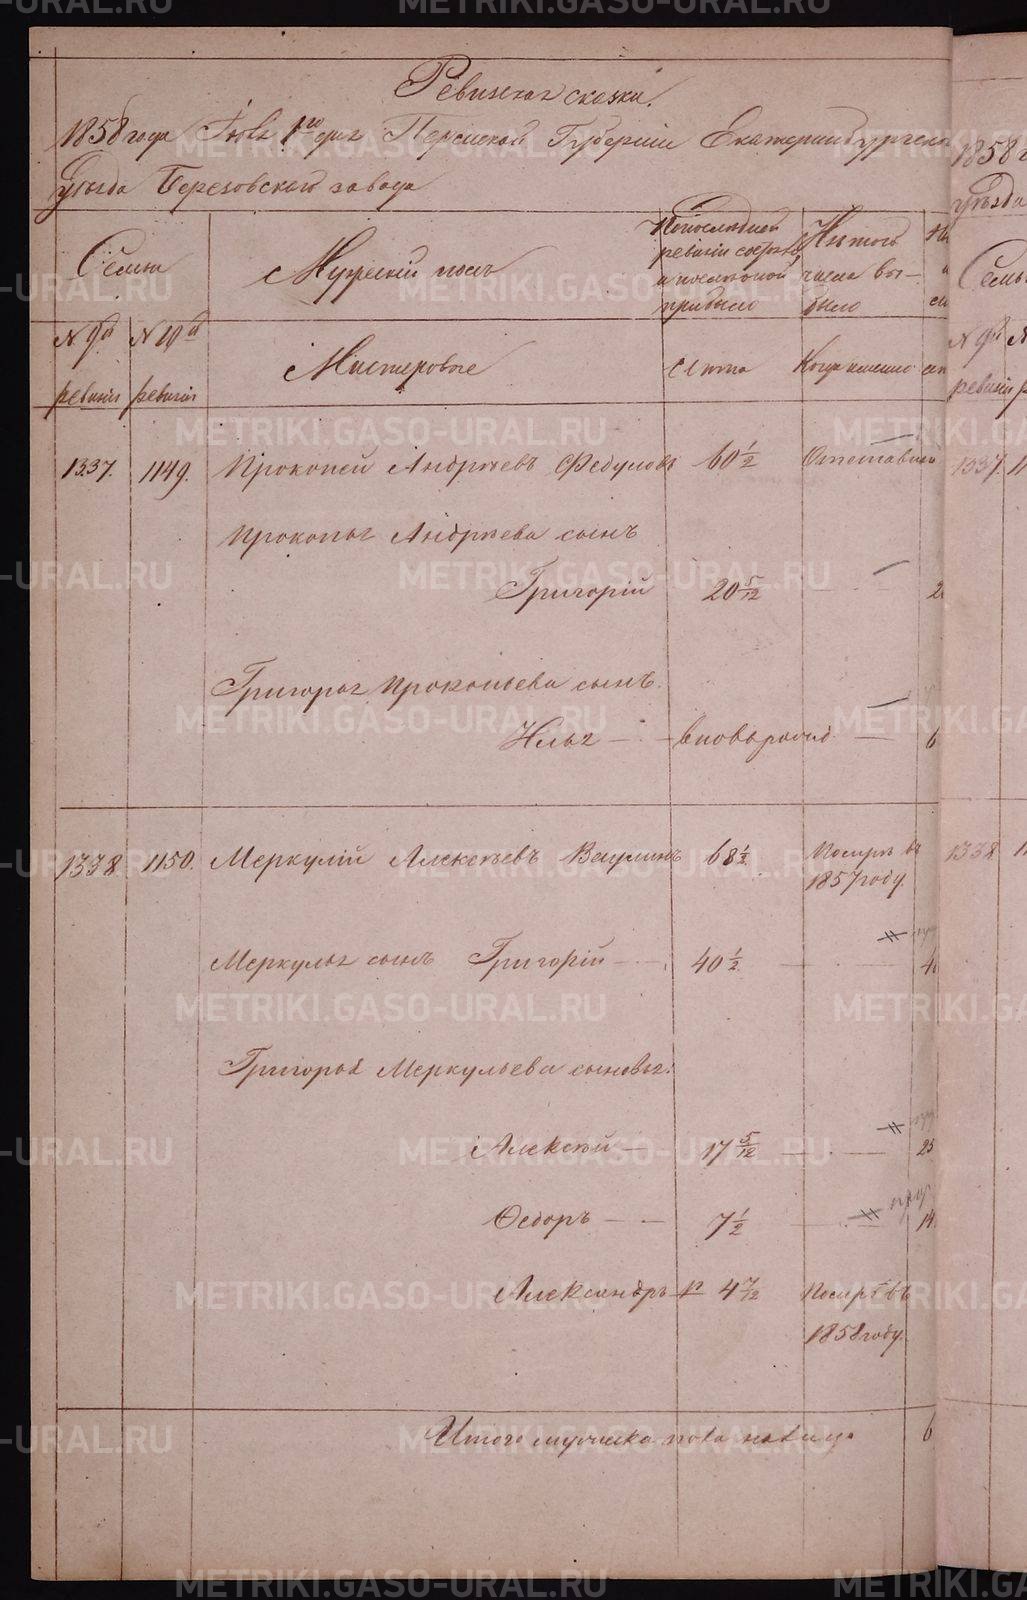 Ревизская сказка.
1858 года Іюня 1го дня Пермской Губерніи Екатеринбургска
Уѣзда Березовскаго завода
Семьи
Мужескій полъ
По последней ревизіи состояло и после оной прибыло
Изъ того числа вы-было
№ 9ой ревизіи
№ 10ой ревизіи
Мастеровые
Лѣта
Когда именно
1337. 1149. Прокопей Андреевъ Федуловъ 60 1/2 Отставной
Прокопья Андреева сынъ
Григорій 20 5/12
Григорья Прокопьева сынъ.
Илья вновьрожд. 6
1338. 1150. Меркулій Алексеевъ Ваулинъ 68 1/2 Померъ въ
1857 году.
Меркулья сынъ Григорій 40 1/2
Григорья Меркульева сыновья:
Алексей 17 5/12 25
Федоръ 7 1/2 14
Александръ 4 7/12 Померъ въ
1858 году.
Итого мужеска пола налицо 6
1858 г
Уѣзда
Семьи
№ 9ой
ревизіи
1337.
1338
METRIKI.GASO-URAL.RU